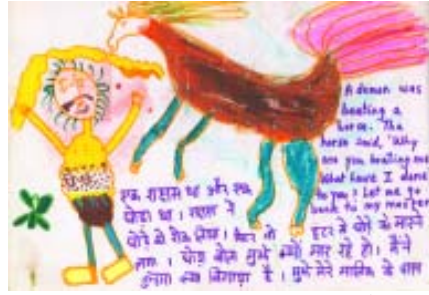 A demon was
beating a
horse. The
horse said, 'Why
are you beating me
What have I done
to you? Let me go
back to my master
एक राक्षस था और एक
घोड़ा था। राक्षस ने
घोड़े को रोक लिया। फिर वो हंटर से घोड़े को मारने
लगा। घोड़ा बोला मुझे क्यों मार रहे हो। मैंने
तुम्हारा क्या बिगाड़ा है। मुझे मेरे मालिक के पास